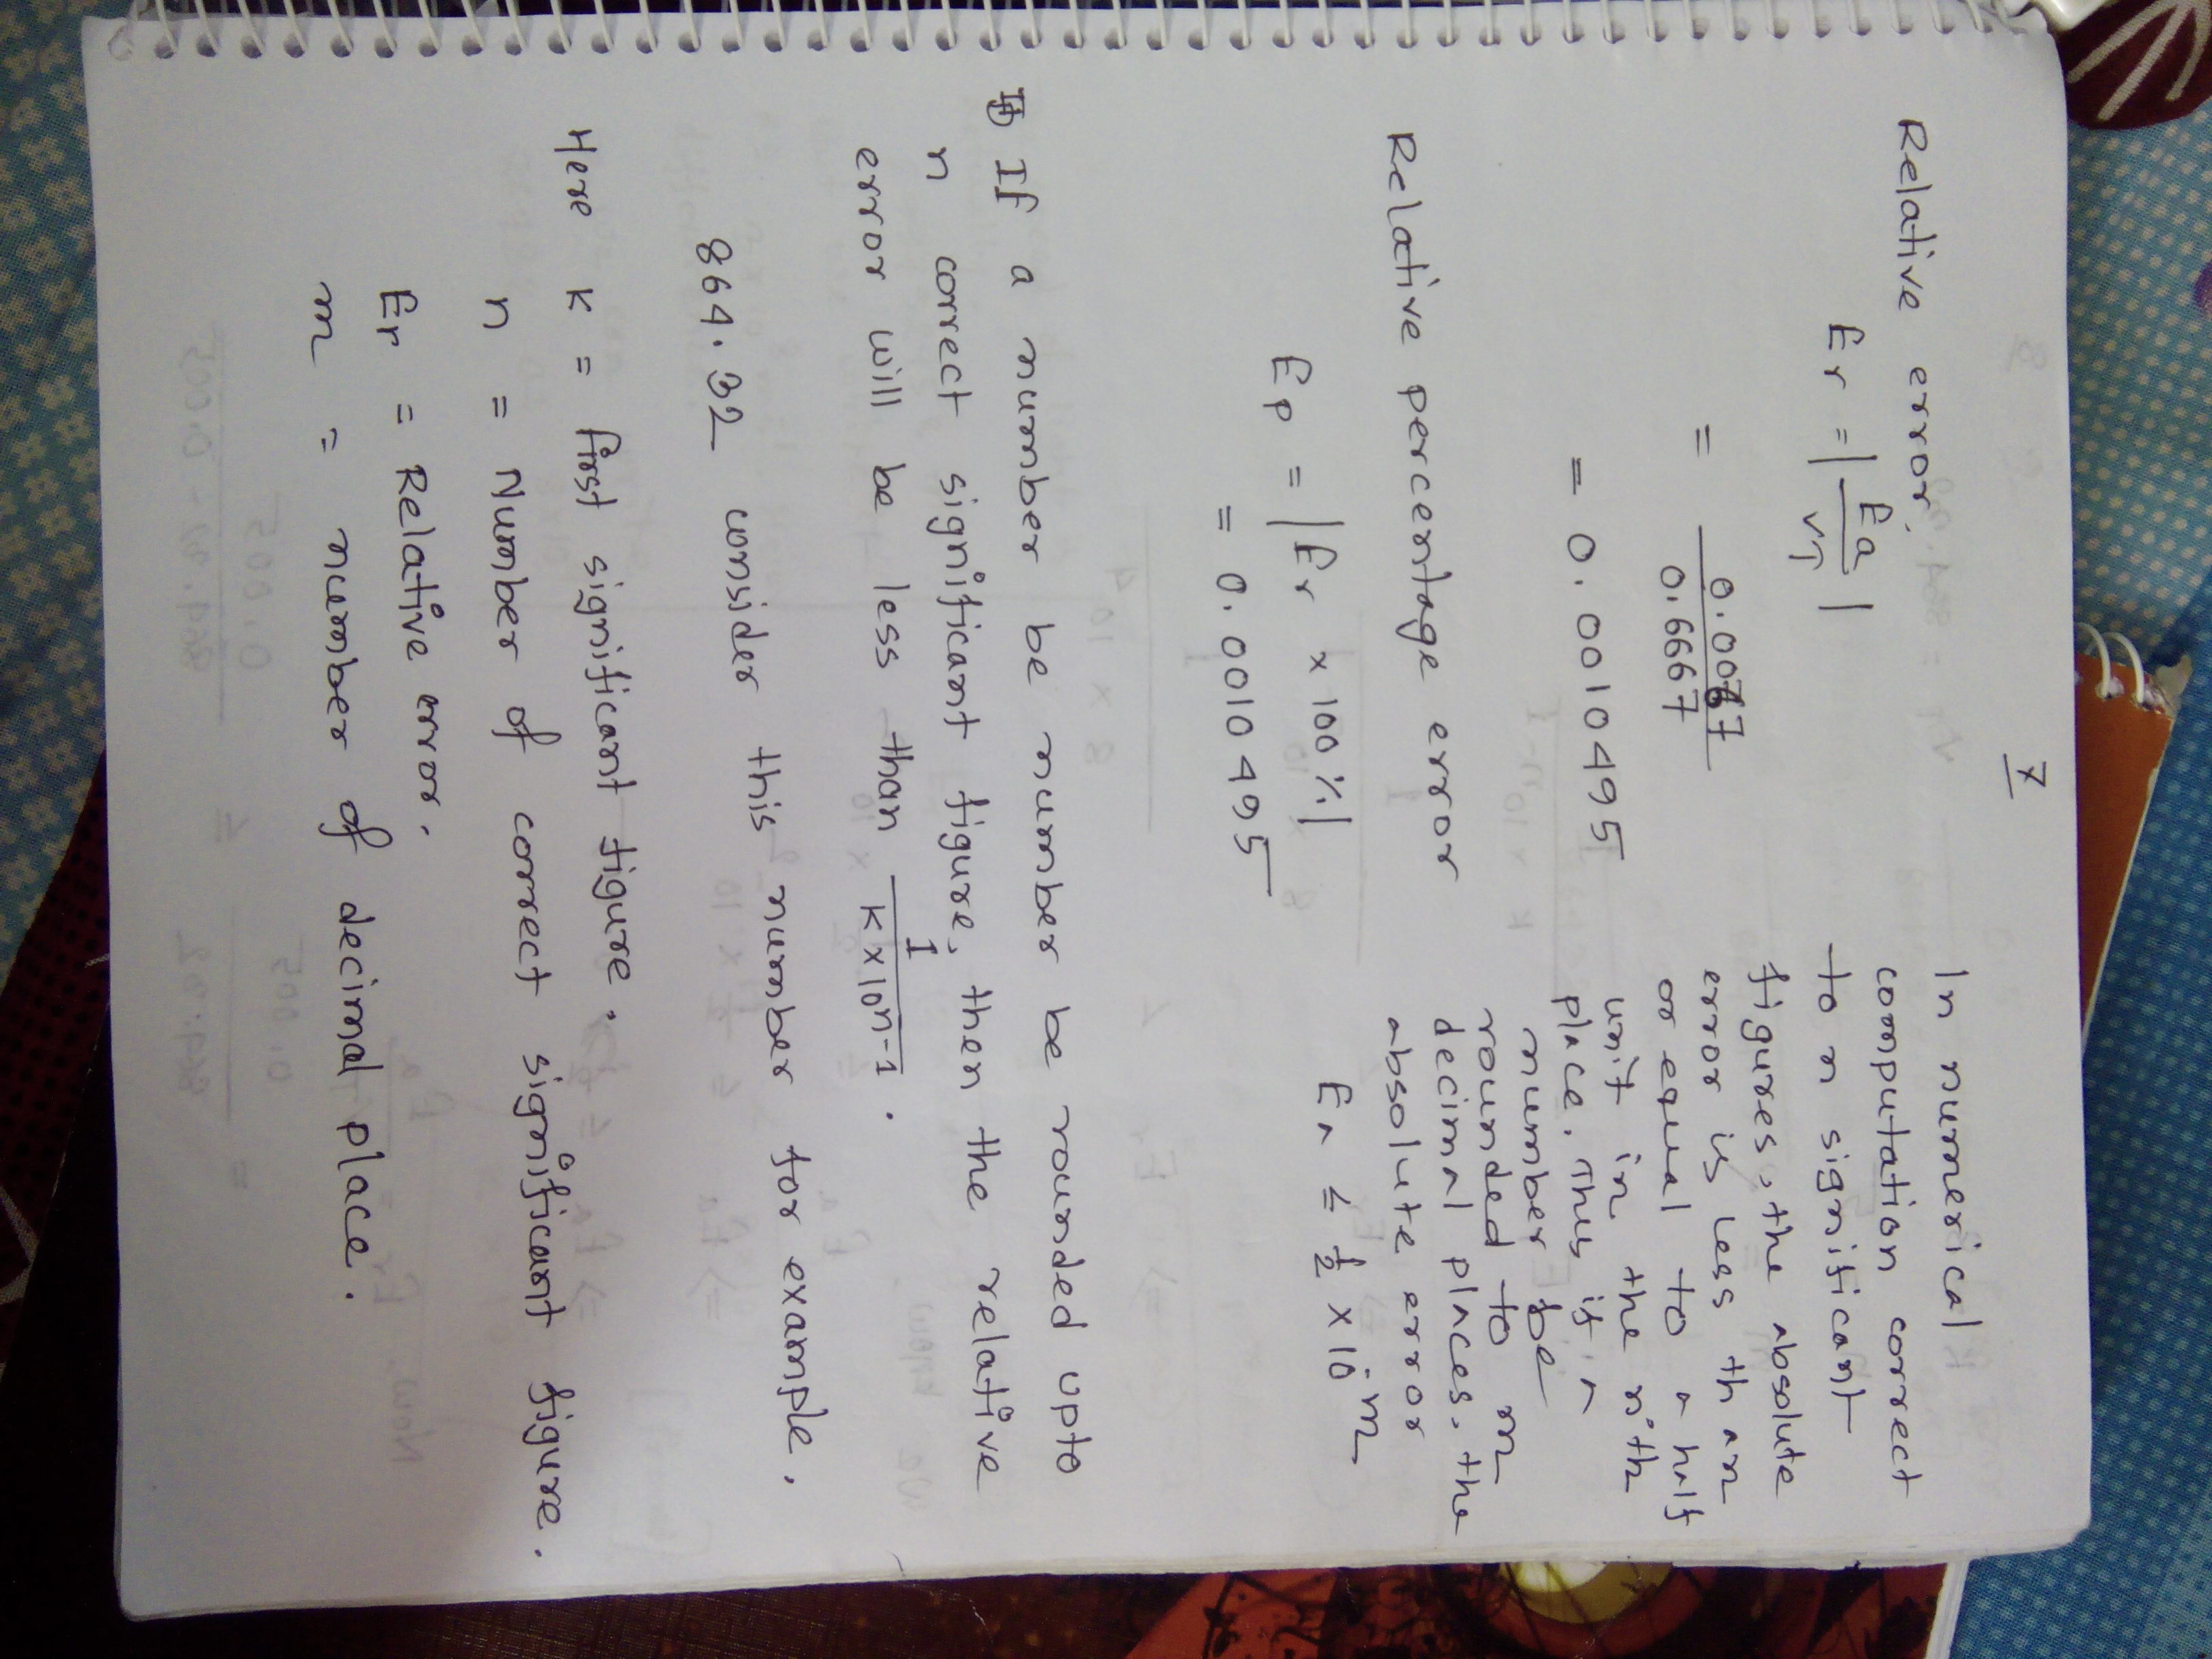 7
Relative error.
Er = | Ea / VT |
= 0.0067 / 0.6667
= 0.0010495
Relative percentage error
Ep = | Er x 100% |
= 0.0010495
In numerical
computation correct
to n significant
figures, the absolute
error is less than
or equal to a half
unit in the n'th
place. Thus if a
number be
rounded to m
decimal places, the
absolute error
Ea ≤ 1/2 x 10^-m
If a number be number be rounded upto
n correct significant figure, then the relative
error will be less than 1 / K x 10^n-1 .
864.32 consider this number for example.
Here K = first significant figure.
n = Number of correct significant figure.
Er = Relative error.
m = number of decimal place.